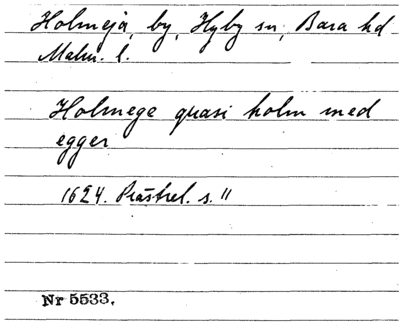 Holmeja, by, Hyby sn, Bara hd
Malm. l.
Holmege quasi holm med
egger
1624. Prästrel. s. 11
Nr 5533.